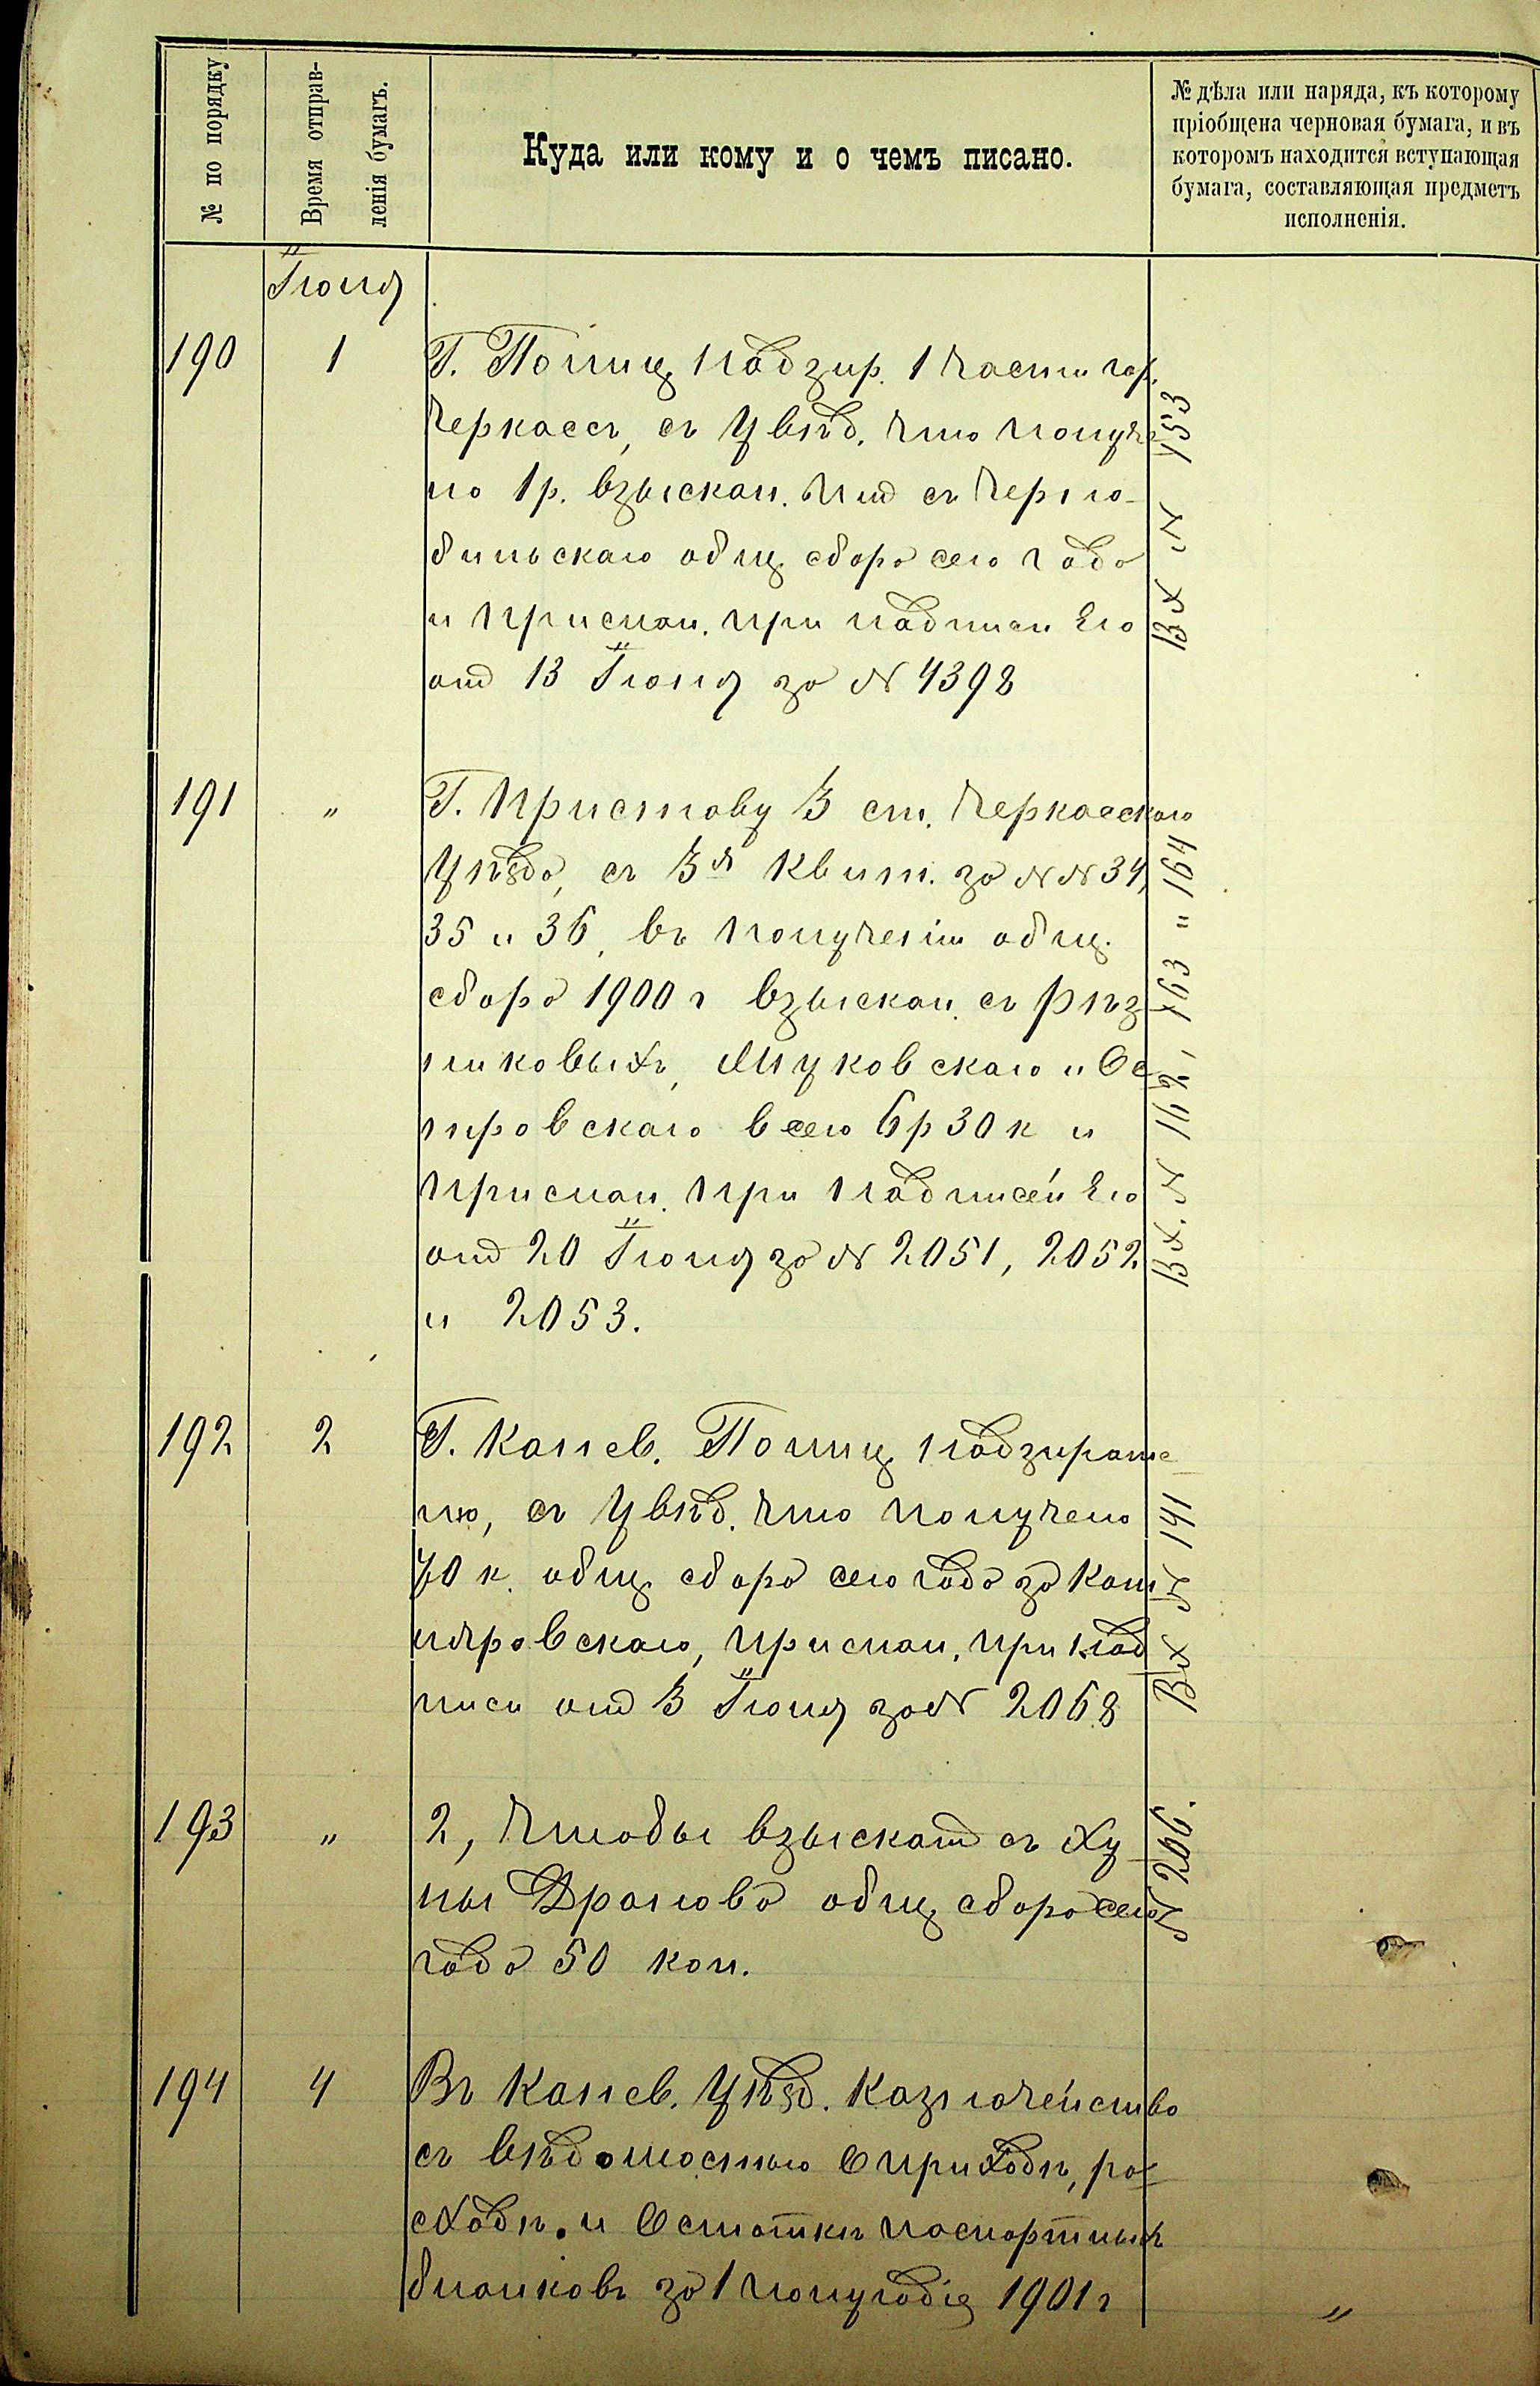 № по порядку
Время отправ-
ленія бумагъ.
Куда или кому и о чемъ писано.
№ дѣла или наряда, къ которому
пріобщена черновая бумага, и въ
которомъ находится вступающая
бумага, составляющая предметъ
исполненія.
Іюля
190 1 Г. Полиц. надзир. 1 части гор.
Черкассъ, съ увѣд. что получе
но 1 р. взыскан. имъ съ Черно-
бильскаго общ. сбора сего года
и прислан. при надписи его
отъ 13 Іюня за № 4398
Вх № 153
191 " Г. Приставу 3 ст. Черкасскаго
уѣзда, съ 3я квит. за №№ 34,
35 и 36, въ полученіи общ.
сбора 1900 г взыскан. съ Рѣз
никовыхъ, Муковскаго и Ос
тровскаго всего 6 р 30 к и
прислан. при надписей его
отъ 20 Іюня за № 2051, 2052
и 2053.
Вх. № 162, 163 " 164
192 2 Г. Канев. Полиц. надзирате
лю, съ увѣд. что получено
70 к. общ. сбора сего года за Кот
ляровскаго, прислан. при над
писи отъ 3 Іюня за № 2068
Вх № 141
193 " 2, чтобы взыскать съ Ху
ны Дранова общ. сбора сего
года 50 коп.
№ 206.
194 4 Въ Канев. уѣзд. казначейство
съ вѣдомостью о приходѣ, ра
сходѣ и остаткѣ паспортныхъ
бланковъ за 1 полугодіе 1901 г
"